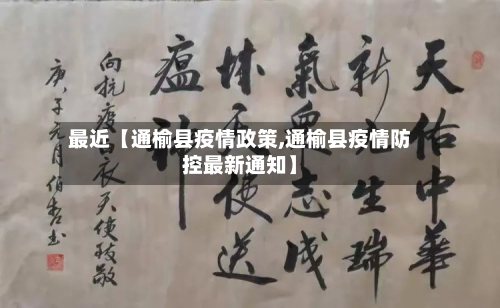 最近【通榆县疫情政策,通榆县疫情防
控最新通知】
天佑中華
新元生瑞
氣眾志成
城天使送
瘟神
向抗疫白衣天使致敬
庚子元月伯